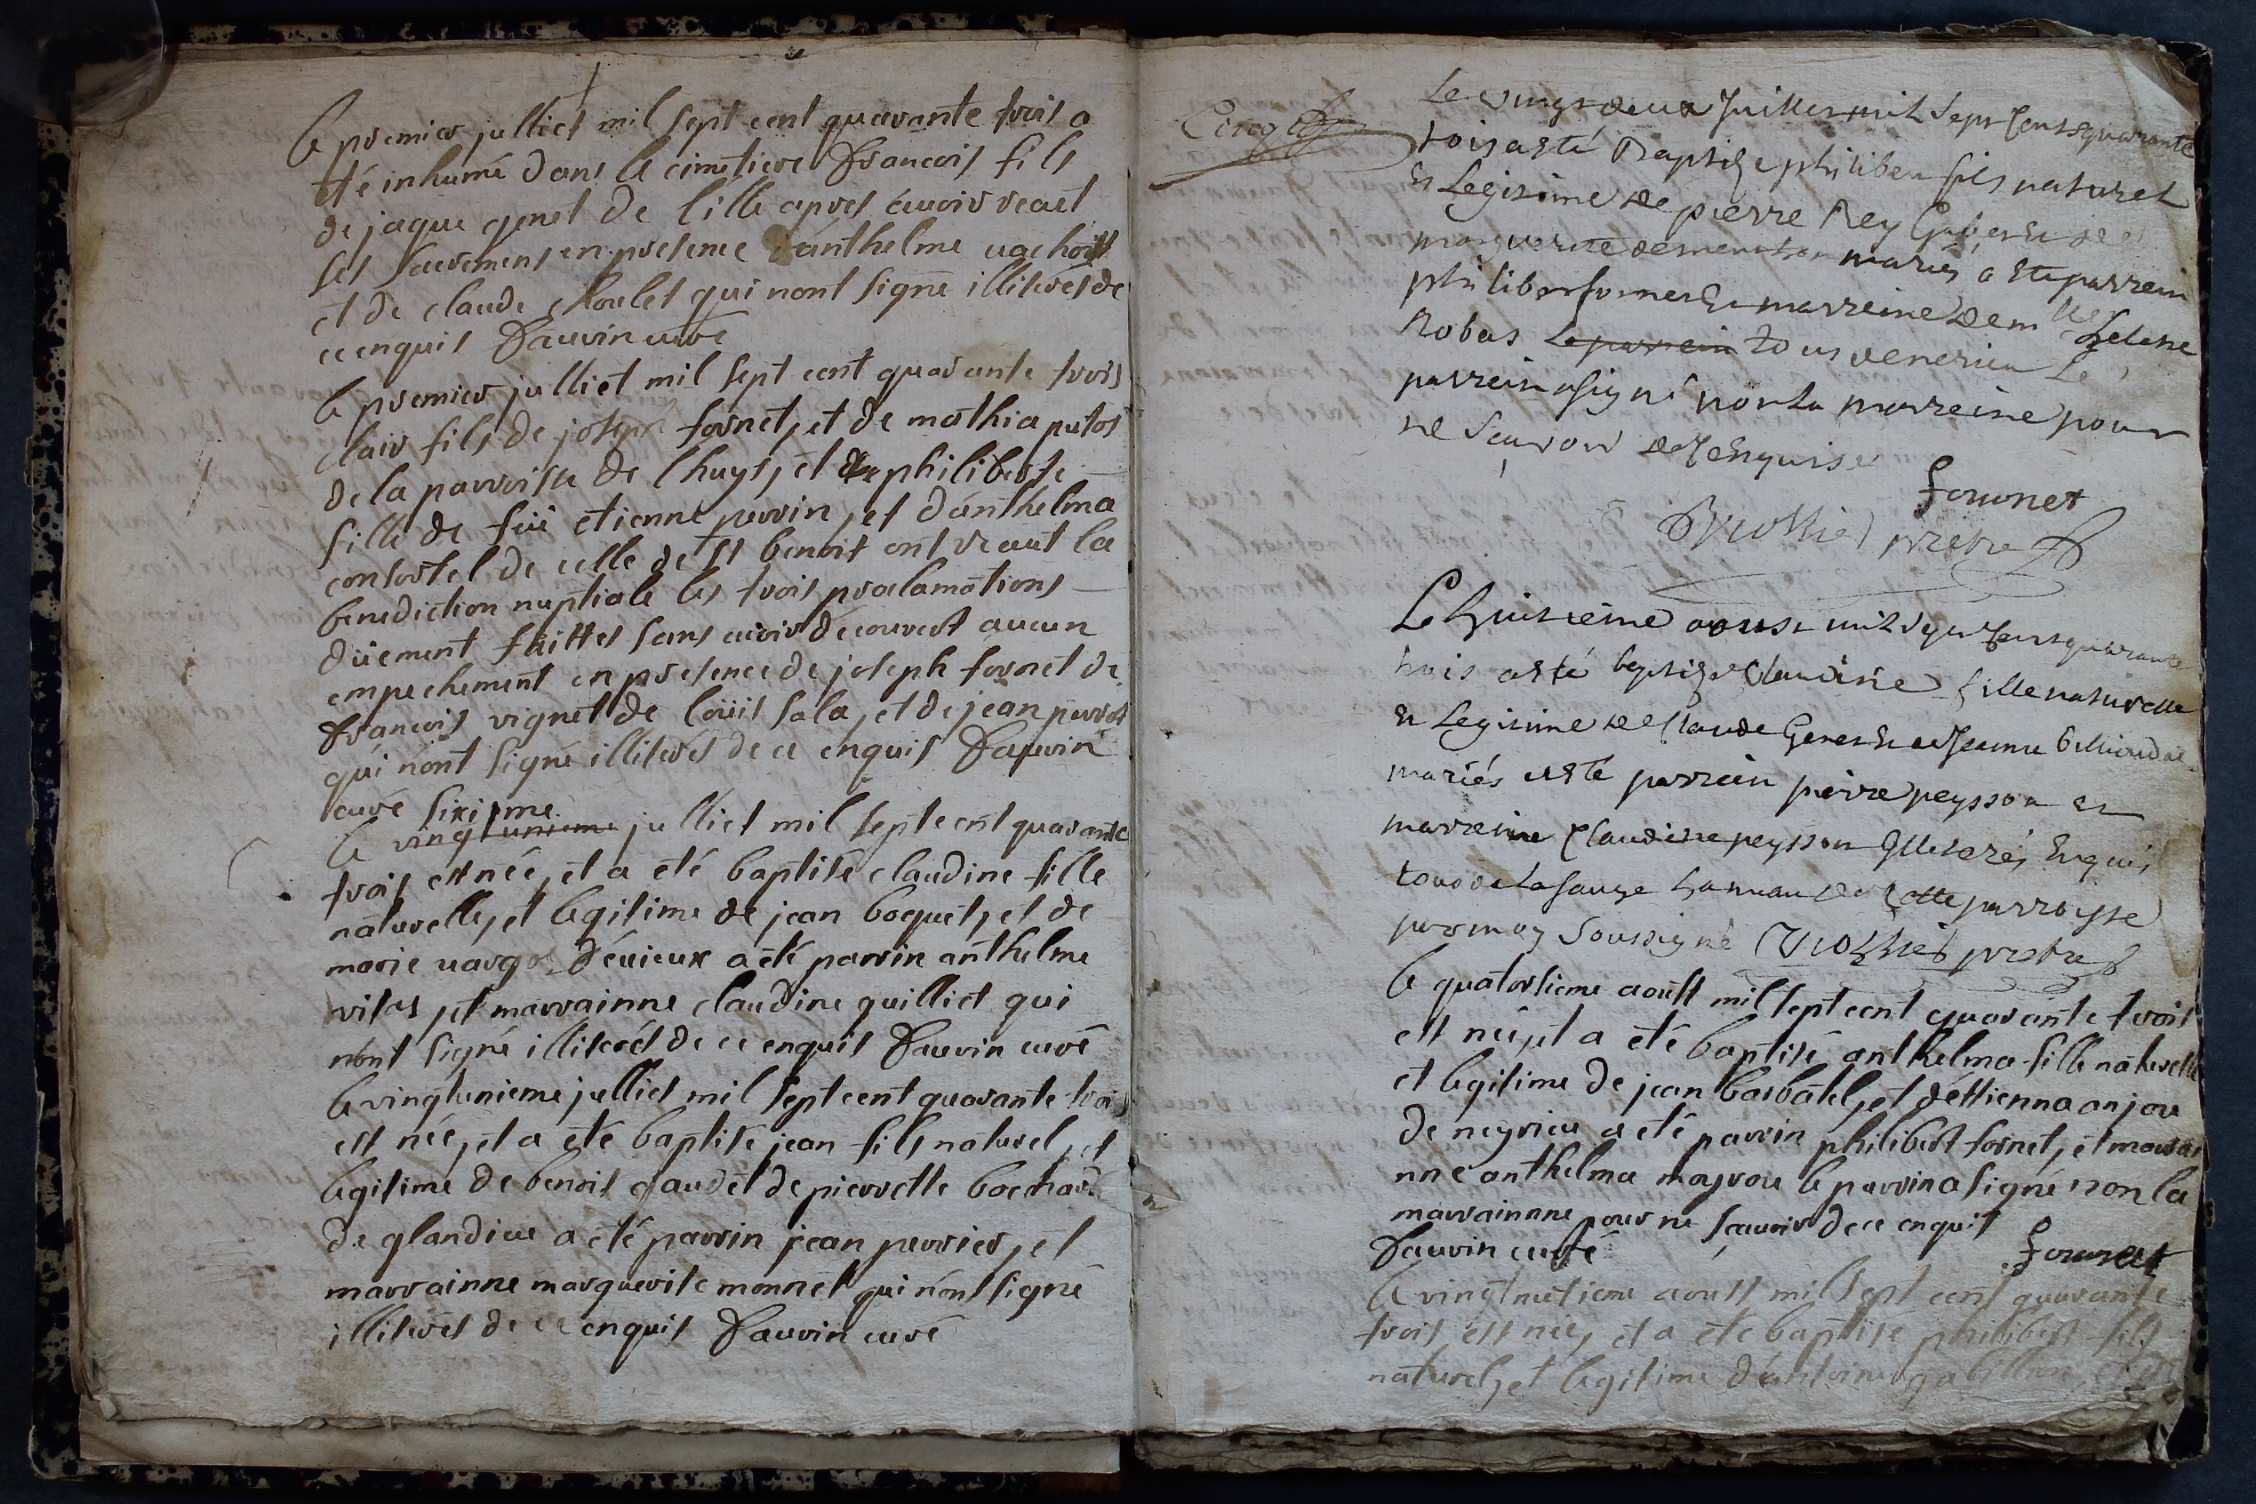 le premier julliet mil sept cent quarante trois a
été inhumé dans le cimetiere francois fils
de jaque genet de lille apres auoir receut
ses sacremens en presence d'anthelme uachott
et de claude choulet qui nont signé illiterés de
ce enquis Dauvin curé
le premier julliet mil sept cent quarante trois
clair fils de joseph fornet, et de mathia putos
de la parroisse de lhuys, et philiberte
fille de feü etienne perrin, et d'anthelma
consortel de celle de st benoit ont receut la
benediction nuptiale les trois proclamations
düement faittes sans auoir découvert aucun
empechement en presence de joseph fornet de
francois vignet de loüis sala, et de jean perrot
qui n'ont signé illiterés de ce enquis Dauvin
curé sixieme
le vingt unieme julliet mil sept cent quarante
trois est née, et a été baptisé claudine fille
naturelle, et legitime de jean boquet, et de
marie uargo d'éuieux a été parrin anthelme
vitas, et marrainne claudine quilliet qui
n'ont signé illiterés de ce enquis Dauvin curé
le vingtunieme julliet mil sept cent quarante trois
est née, et a été baptisé jean fils naturel, et
legitime de benoit gaudet de pierrette bochard
de glandieu a été parrin jean perrier, et
marrainne marguerite monnet qui n'ont signé
illiterés de ce enquis Dauvin curé
Cinq
Le vingt deux Juillet mil sept Cents quarante
trois a esté Baptisé philiber fils naturel
et Legitime de pierre Rey et de
marguerite mariés a esté parrein
philiber fornet et marreine dem lle helene
Robas Le parrein tous Le
parrein a signé non La marreine pour
ne Scauoir de Ce Enquise
fournet
Brossied pretre
Le huitieme aoust mil sept Cents quarante
trois a esté baptisée Claudine fille naturelle
et Legitime de Claude Genet et de Jeanne
mariés a esté parrein pierre peysson et
marreine Claudine peysson Illiterés Enquis
tous de La Sauge hameau de Cette parroysse
par moy Soussigné Brossied pretre
le quatorsieme aoust mil sept cent quarante trois
est née, et a été baptisé anthelma fille naturelle
et legitime de jean barbatel, et d'éttienna anjou
de neyrieu a été parrin philibert fornet, et marrai
nne anthelma mayrou le parrin a signé non la
marrainne pour ne scauoir de ce enquis
Dauvin curé
fournet
le vingtnutieme aoust mil sept cent quarante
trois est née, et a été baptisé philibert fils
naturel, et legitime d'antoine gabillon, et de